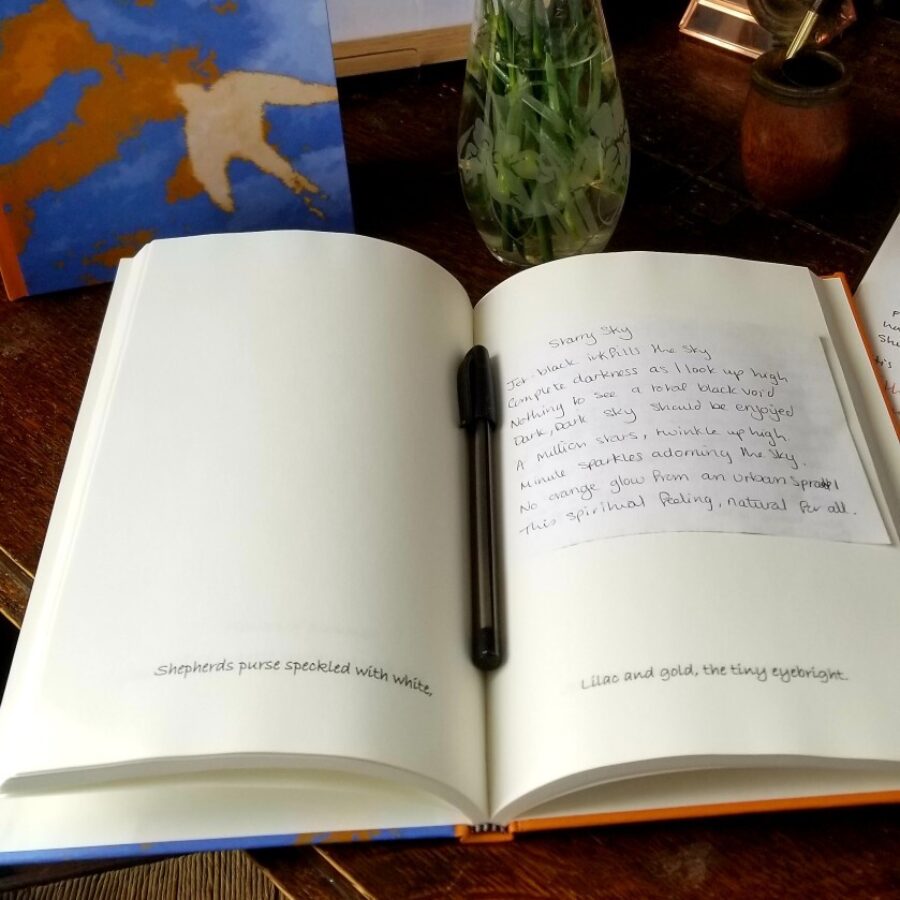 Shepherds purse speckled with white,
Starry Sky
Jet-black ink fills the sky
Complete darkness as I look up high
Nothing to see a total black void
Dark, Dark sky should be enjoyed
A million stars, twinkle up high
Minute sparkles adorning the sky.
No orange glow from an urban
This spiritual feeling, natural for all.
Lilac and gold, the tiny eyebright.